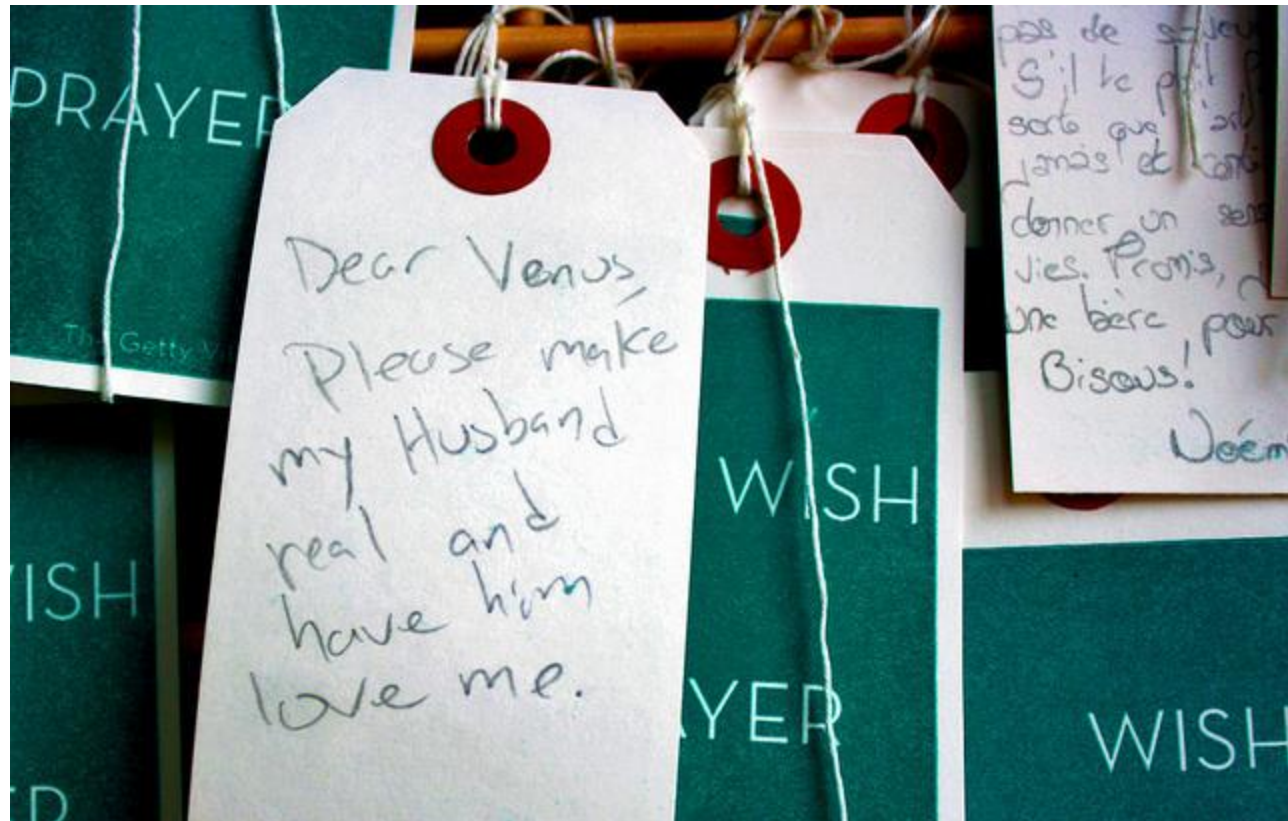 PRAYER
The Getty Vi
ISH
Dear Venus,
Please make
my Husband
real and
have him
love me.
WISH
AYER
pas de
S'il te
sorte que
jamais et
donner un sens
vies. Promis,
une bière pour
Bisous!
Noém
WISH